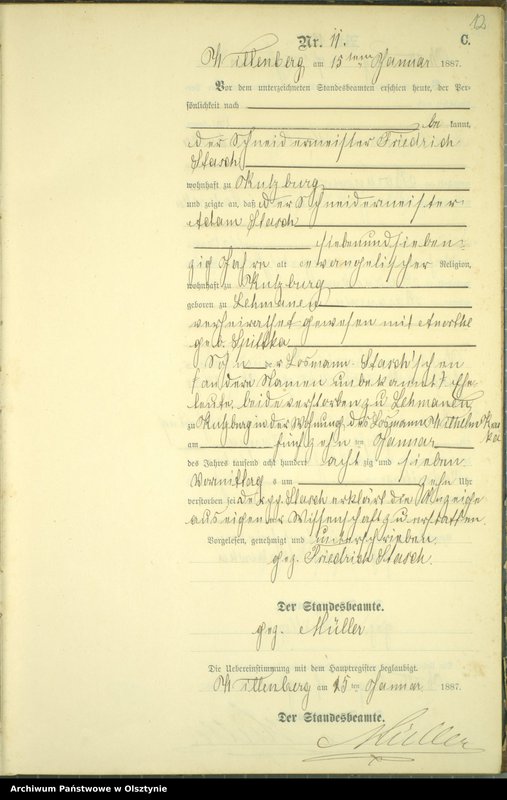 12
Nr. 11. C.
Wittenberg am 15ten Januar 1887.
Vor dem unterzeichneten Standesbeamten erschien heute, der Per-
sönlichkeit nach
be kannt,
der Schneidermeister Friedrich
Stasch
wohnhaft zu Kutzburg
und zeigte an, daß der Schneidermeister
Adam Stasch
siebenundsieben-
zig Jahre alt evangelischer Religion,
wohnhaft zu Kutzburg
geboren zu Lehmanen
verheirathet gewesen mit
geb.
Sohn der Losmann Stasch'schen
(andere Namen unbekannt) Ehe-
leute, beide verstorben zu Lehmanen
zu Kutzburg in der Wohnung des Losmanns Wilhelm
am fünfzehnten Januar
des Jahres tausend acht hundert achtzig und sieben
Vormittags um zehn Uhr
verstorben sei. Der pp. Stasch erklärt die Anzeige
aus eigener Wissenschaft zu erstatten.
Vorgelesen, genehmigt und unterschrieben.
gez. Friedrich Stasch.
Der Standesbeamte.
gez. Müller
Die Uebereinstimmung mit dem Hauptregister beglaubigt.
Wittenberg am 15ten Januar 1887.
Der Standesbeamte.
Müller
Archiwum Państwowe w Olsztynie